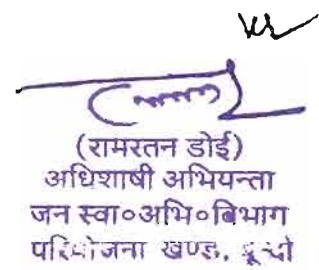 (रामरतन डोई)
अधिशाषी अभियन्ता
जन स्वा०अभि०बिभाग
परियोजना खण्ड,